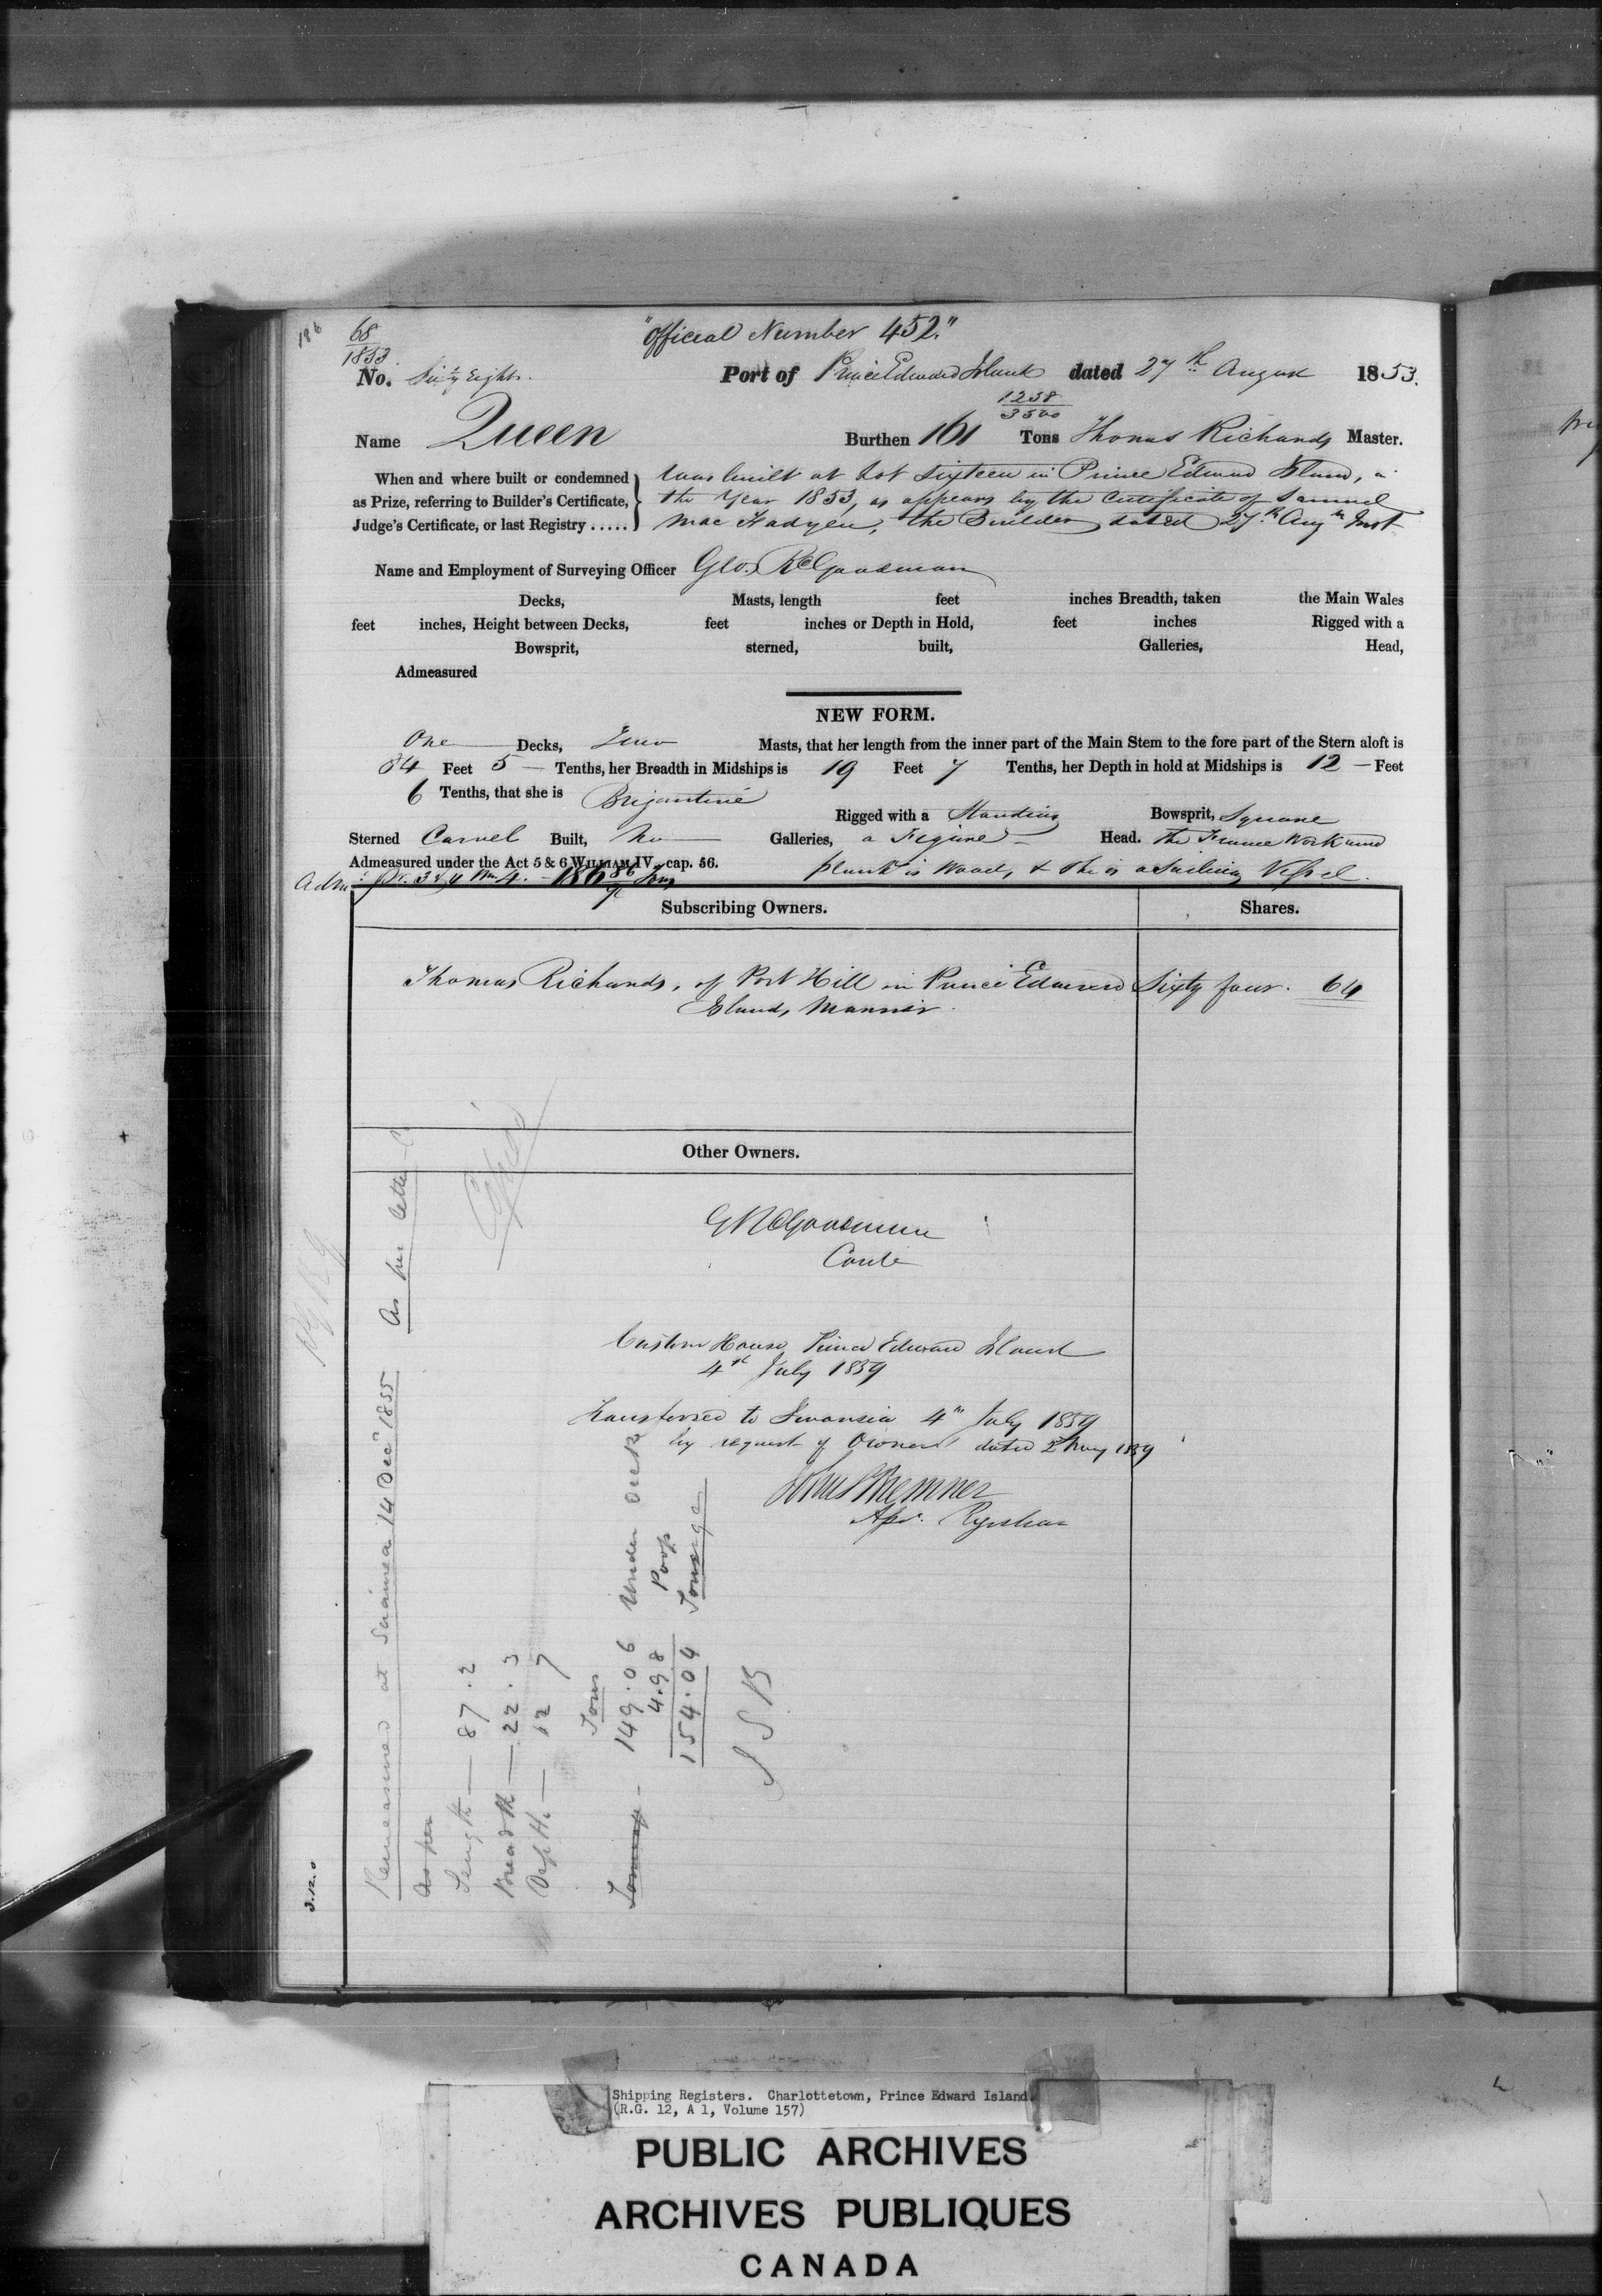 186
68
1853
"Official Number 452."
No. Sixty Eight. Port of Prince Edward Island dated 27th August 1853.
1258
3500
Name Queen Burthen 161 Tons Thomas Richards Master.
When and where built or condemned as Prize, referring to Builder's Certificate, Judge's Certificate, or last Registry .....
Was built at Lot Sixteen in Prince Edward Island, in
the Year 1853, as appears by the Certificate of Samuel
Mac Fadyen, the Builder dated 27th Aug Inst
Name and Employment of Surveying Officer Geo. R C Goodman
Decks, Masts, length feet inches Breadth, taken the Main Wales
feet inches, Height between Decks, feet inches or Depth in Hold, feet inches Rigged with a
Bowsprit, sterned, built, Galleries, Head,
Admeasured
NEW FORM.
One Decks, Two Masts, that her length from the inner part of the Main Stem to the fore part of the Stern aloft is
84 Feet 5 Tenths, her Breadth in Midships is 19 Feet 7 Tenths, her Depth in hold at Midships is 12 Feet
6 Tenths, that she is Brigantine Rigged with a Standing Bowsprit, Square
Sterned Carvel Built, No Galleries, a Figure Head. the Frame Work and
Admeasured under the Act 5 & 6 WILLIAM IV. cap. 56. plank is Wood, & she is a Sailing Vessel.
Adm. pr. 3 & 4 Wm 4. - 186 86 Tons
Subscribing Owners. Shares.
Thomas Richards, of Port Hill in Prince Edward Sixty four. 64
Island, Mariner.
Other Owners.
G R C Goodman
Contr
Custom House Prince Edward Island
4th July 1859
Transferred to Swansea 4th July 1859
by request of Owner dated 2 May 1859
John S Bremner
Registrar
Remeasured at Swansea 14 Decr 1855 As per letter
as per
Length — 87.2
Breadth — 22.3
Depth — 12 7
Tons
Tonnage - 149.06 Under Deck
4.98 Poop
154.04 Tonnage
J S B
3.12.0
Shipping Registers. Charlottetown, Prince Edward Island.
(R.G. 12, A 1, Volume 157)
PUBLIC ARCHIVES
ARCHIVES PUBLIQUES
CANADA